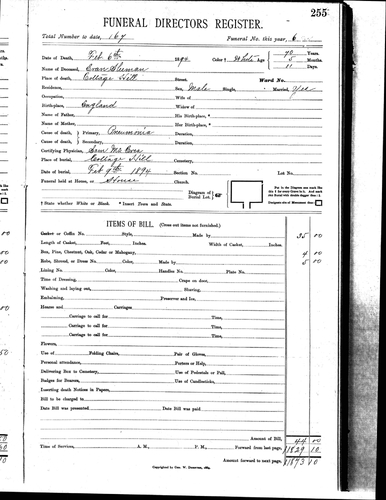 255
FUNERAL DIRECTORS REGISTER.
Total Number to date, 167 Funeral No. this year, 6
Date of Death, Feb 6th 1894 Color† White Age 70 Years. 5 Months 11 Days.
Name of Deceased, Evan
Place of death, Cottage Hill Street, Ward No.
Residence, Sex, Male Single, Married, Yes
Occupation, Wife of
Birth-place, England Widow of
Name of Father, His Birth-place, *
Name of Mother, Her Birth-place, *
Cause of death, Primary, Pneumonia Duration,
Cause of death, Secondary, Duration,
Certifying Physician, Sam
Place of burial, Cottage Hill Cemetery,
Date of burial Feb 9th 1894 Section No. Lot No.
Funeral held at Home, or House Church. Diagram of Burial Lot
† State whether White or Black. * Insert Town and State.
ITEMS OF BILL. (Cross out items not furnished.)
Casket or Coffin No. Style, Made by 35 00
Length of Casket, Feet, Inches. Width of Casket, Inches.
Box, Pine, Chestnut, Oak, Cedar or Mahogany, 4 00
Robe, Shroud, or Dress No. Color, Made by 5 00
Lining No. Color, Handles No. Plate No.
Time of Dressing, Crape on door,
Washing and laying out, Shaving,
Embalming, Preserver and Ice,
Hearse and Carriages
Carriage to call for Time,
Carriage to call for Time,
Carriage to call for Time,
Flowers,
Use of Folding Chairs, Pair of Gloves,
Personal attendance, Porters or Help,
Delivering Box to Cemetery, Use of Pedestals or Pall,
Badges for Bearers, Use of Candlesticks,
Inserting death Notices in Papers,
Bill to be charged to
Date Bill was presented Date Bill was paid
Amount of Bill, 44 00
Time of Services, A. M., P. M., Forward from last page, 1829 10
Amount forward to next page, $1873 10